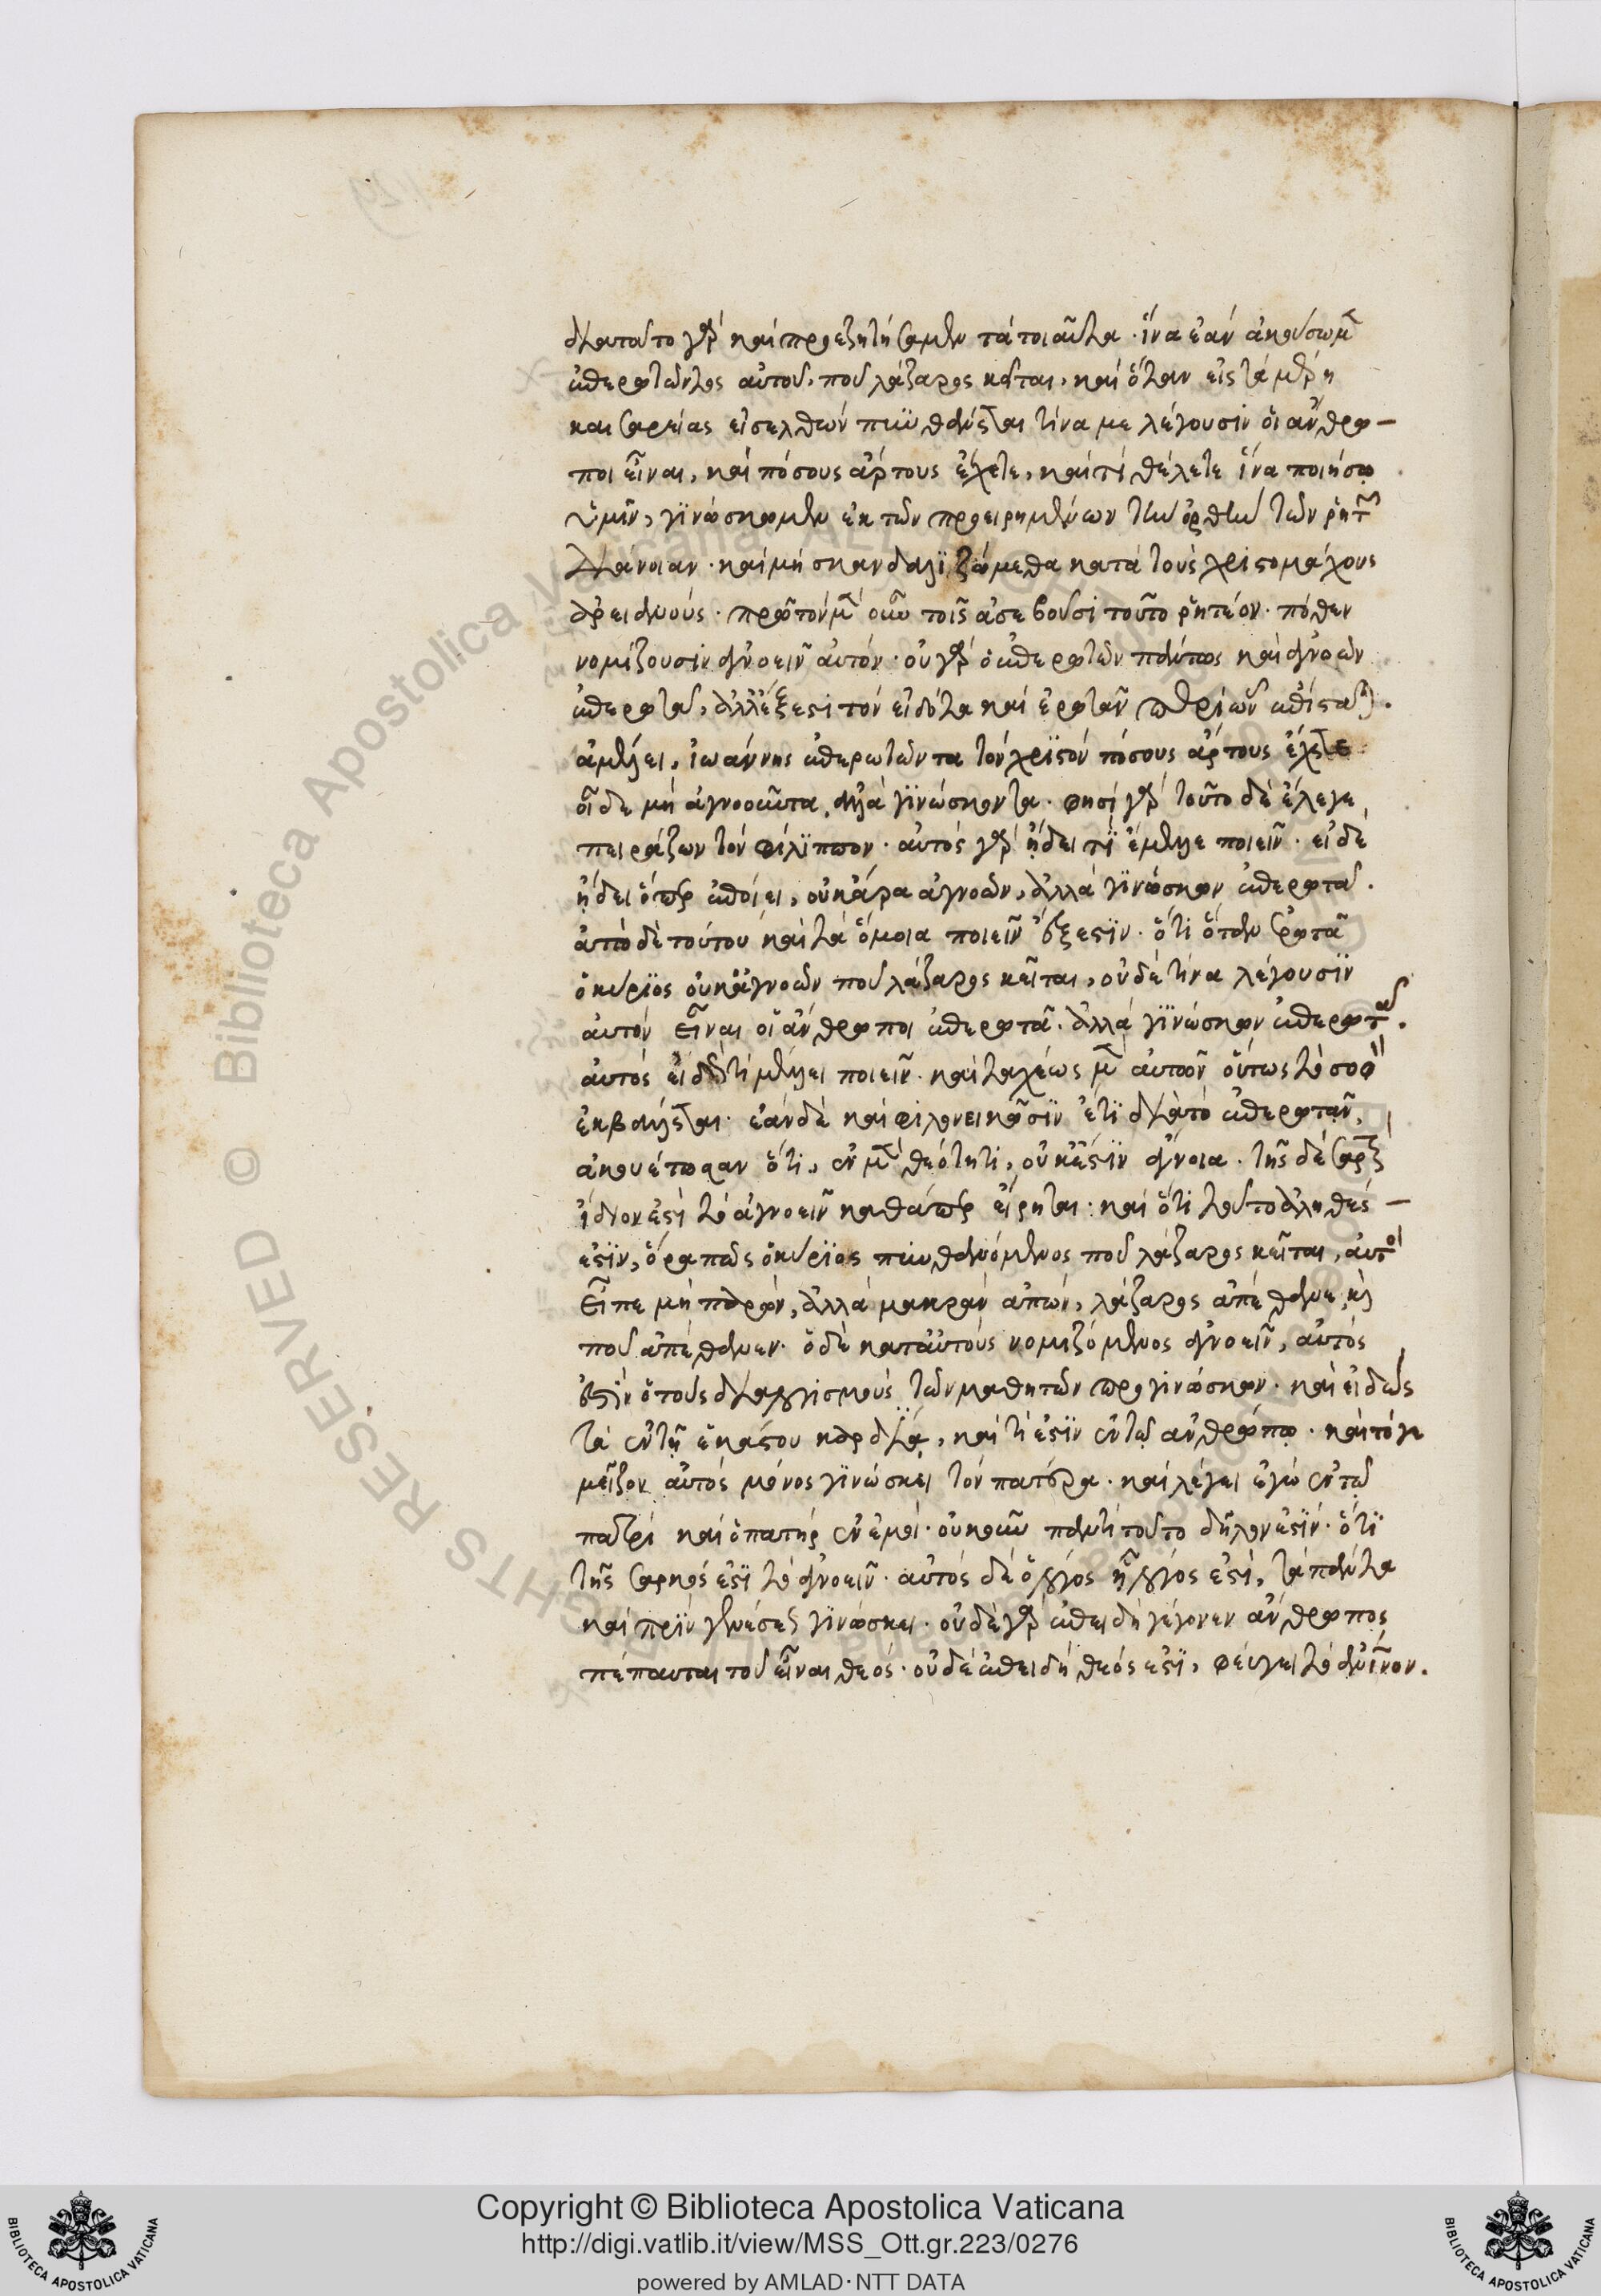 διατοῦτο γὰρ καὶ προεξητήσαμεν τὰ τοιαῦτα · ἵνα ἐὰν ἀκούσωμεν
ἐπερωτῶντος αὐτοῦ, ποῦ λάζαρος κεῖται, καὶ ὅταν εἰς τὰ μέρη
καισαρείας εἰσελθὼν πυνθάνεται τίνα με λέγουσιν οἱ ἄνθρω–
ποι εἶναι, καὶ πόσους ἄρτους ἔχετε, καὶ τί θέλετε ἵνα ποιήσω
ὑμῖν, γινώσκωμεν ἐκ τῶν προειρημένων τὴν ὀρθὴν τῶν ῥητῶν
διάνοιαν · καὶ μὴ σκανδαλιζώμεθα κατὰ τοὺς χριστομάχους
ἀρειανούς · πρῶτον μὲν οὖν τοῖς ἀσεβοῦσι τοῦτο ῥητέον · πόθεν
νομίζουσιν ἀγνοεῖν αὐτόν · οὐ γὰρ ὁ ἐπερωτῶν πάντως καὶ ἀγνοῶν
ἐπερωτᾷ, ἀλλ' ἔξεστι τὸν εἰδότα καὶ ἐρωτᾶν περὶ ὧν ἐπίσταται .
ἀμέλει, ἰωάννης ἐπερωτῶντα τὸν χριστὸν πόσους ἄρτους ἔχετε
οἶδε μὴ ἀγνοοῦντα ἀλλὰ γινώσκοντα · φησὶ γὰρ τοῦτο δὲ ἔλεγε
πειράζων τὸν φίλιππον · αὐτὸς γὰρ ᾔδει τί ἔμελλε ποιεῖν · εἰ δὲ
ᾔδει ὅπερ ἐποίει, οὐκ ἄρα ἀγνοῶν, ἀλλὰ γινώσκων ἐπερωτᾷ .
ἀπὸ δὲ τούτου καὶ τὰ ὅμοια ποιεῖν ἔξεστιν · ὅτι ὅταν ἐρωτᾷ
ὁ κύριος οὐκ ἀγνοῶν ποῦ λάζαρος κεῖται, οὐδὲ τίνα λέγουσιν
αὐτὸν εἶναι οἱ ἄνθρωποι ἐπερωτᾷ · ἀλλὰ γινώσκων ἐπερωτᾷ .
αὐτὸς εἰδὼς τί μέλλει ποιεῖν · καὶ ταχέως μὲν αὐτῶν οὕτως τὸ σοφὸν
ἐκβάλλεται · ἐὰν δὲ καὶ φιλονεικῶσιν ἔτι διὰ τὸ ἐπερωτᾶν,
ἀκουέτωσαν ὅτι, ἐν μὲν θεότητι, οὐκ ἔστιν ἄγνοια · τῆς δὲ σαρκὸς
ἴδιον ἐστὶ τὸ ἀγνοεῖν καθάπερ εἴρηται · καὶ ὅτι τοῦτο ἀληθές –
ἐστιν, ὅρα πῶς ὁ κύριος πυνθανόμενος ποῦ λάζαρος κεῖται, αὐτὸς
εἶπε μὴ παρών, ἀλλὰ μακρὰν ἀπών, λάζαρος ἀπέθανε, καὶ
ποῦ ἀπέθανεν · ὁ δὲ κατ' αὐτοὺς νομιζόμενος ἀγνοεῖν, αὐτός
ἐστιν ὁ τοὺς διαλογισμοὺς τῶν μαθητῶν προγινώσκων · καὶ εἰδὼς
τὰ ἐν τῇ ἑκάστου καρδίᾳ, καὶ τί ἐστιν ἐν τῷ ἀνθρώπῳ · καὶ τό γε
μεῖζον αὐτὸς μόνος γινώσκει τὸν πατέρα · καὶ λέγει ἐγὼ ἐν τῷ
πατρὶ καὶ ὁ πατὴρ ἐν ἐμοί · οὐκοῦν παντὶ τοῦτο δῆλον ἐστίν · ὅτι
τῆς σαρκός ἐστι τὸ ἀγνοεῖν · αὐτὸς δὲ ὁ λόγος ᾗ λόγος ἐστί, τὰ πάντα
καὶ πρὶν γενέσεως γινώσκει · οὐδὲ γὰρ ἐπειδὴ γέγονεν ἄνθρωπος
πέπαυται τοῦ εἶναι θεός · οὐδὲ ἐπειδὴ θεός ἐστι, φεύγει τὸ ἀνθρώπινον .
Copyright © Biblioteca Apostolica Vaticana
http://digi.vatlib.it/view/MSS_Ott.gr.223/0276
powered by AMLAD·NTT DATA